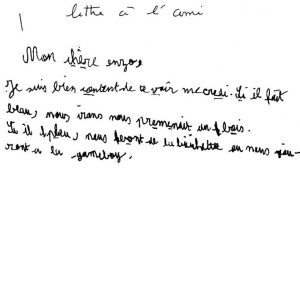 lettre à l'ami
Mon chère enzo,
Je suis bien content de te voir mecredi. Si il fait
beau, nous irons nous promenait un bois.
Si il pleu, nous feront de la ou nous jou-
ront a la gameboy.